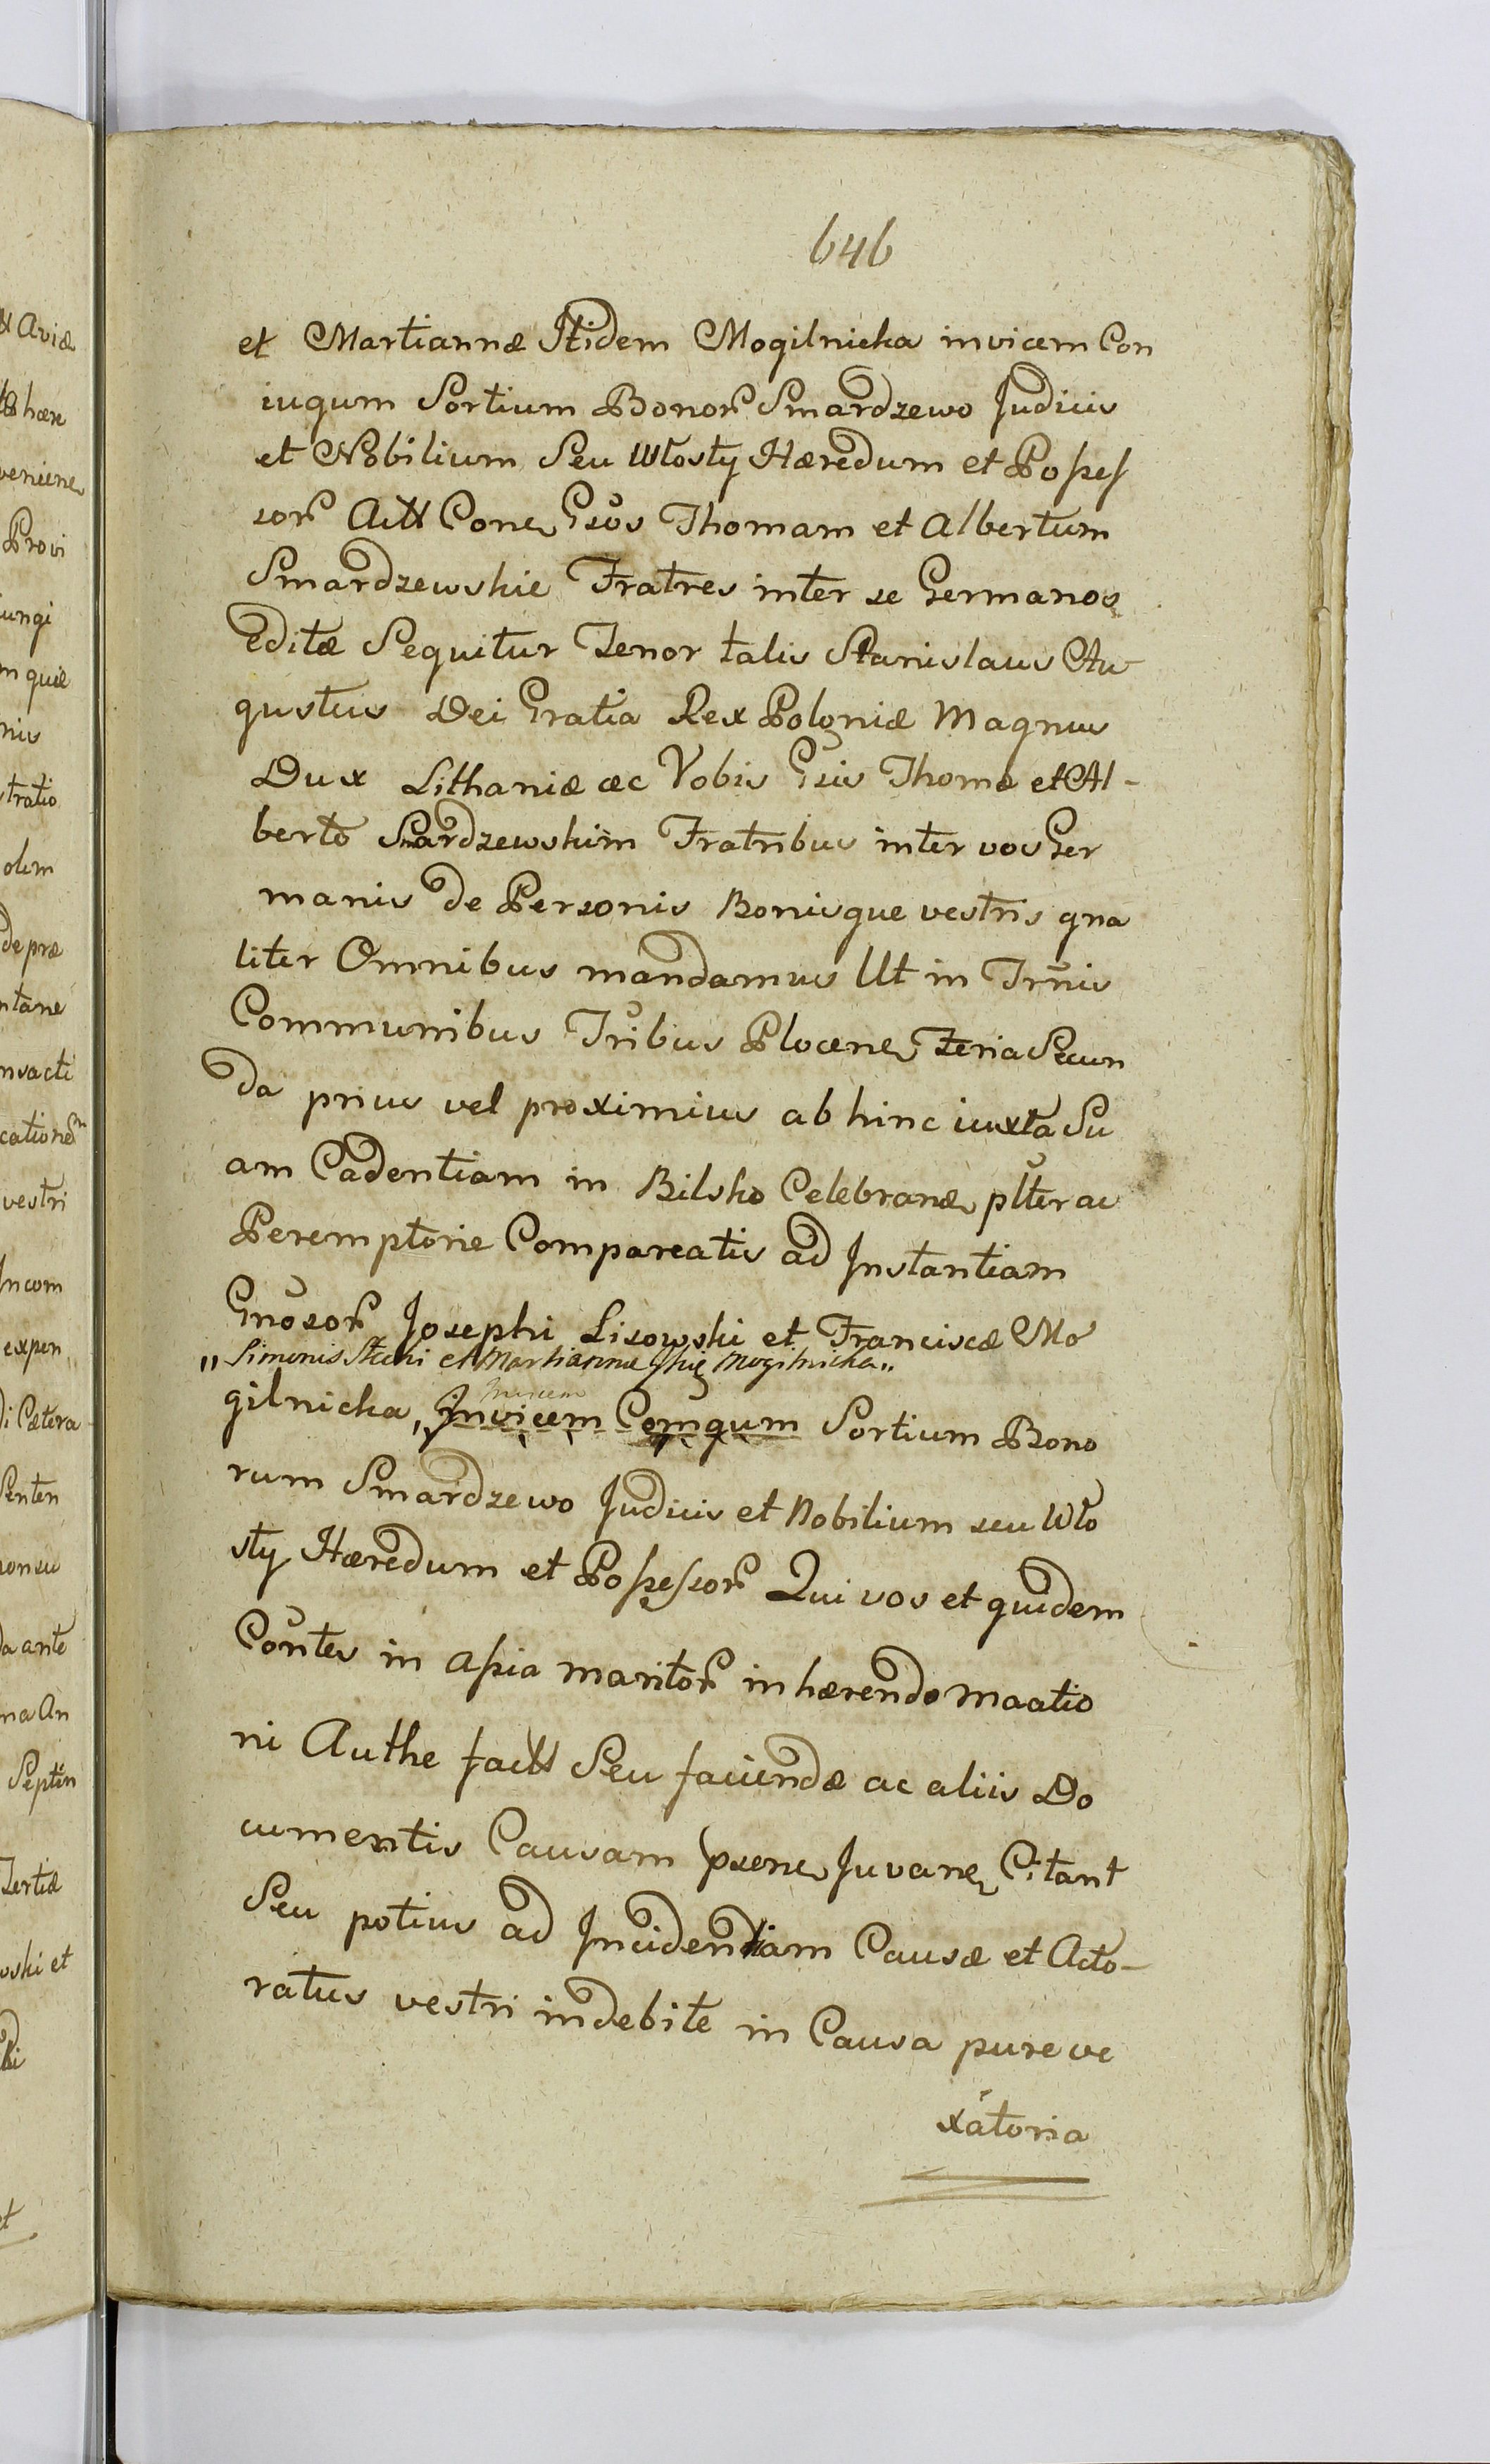 646
et Martiannæ Itidem Mogilnicka invicem Con
iugum Sortium Bonor Smardzewo Judicis
et Nobilium Seu Włosty Hæredum et Posses
sor Actt Conc Gsos Thomam et Albertum
Smardzewskie Fratres inter se Germanos
Editæ Sequitur Tenor talis Stanislaus Au-
gustus Dei Gratia Rex Poloniæ Magnus
Dux Lithaniæ ac Vobis Gsis Thomæ et Al-
berto Smardzewskim Fratribus inter vos Ger
manis de Personis Bonisque vestris gna
liter Omnibus mandamus Ut in Trnis
Communibus Tribus Plocene Feria Secun
da prius vel proximius ab hinc iuxta Su
am Cadentiam in Bilsko Celebrane plter ac
Peremptorie Compareatis ad Instantiam
Gnosor Josephi Lisowski et Franciscæ Mo
"Simonis et Martiannæ Mogilnicka"
gilnicka, Invicem Coniugum Sortium Bono
rum Smardzewo Judicis et Nobilium seu Wło
sty Hæredum et Possessor Qui vos et quidem
Contes in assia maritor inhærendo maatio
ni Authe factt Seu faciendæ ac aliis Do
cumentis Causam psene Juvane Citant
Seu potius ad Incidentiam Causæ et Acto-
ratus vestri indebite in Causa pure ve
xatoria